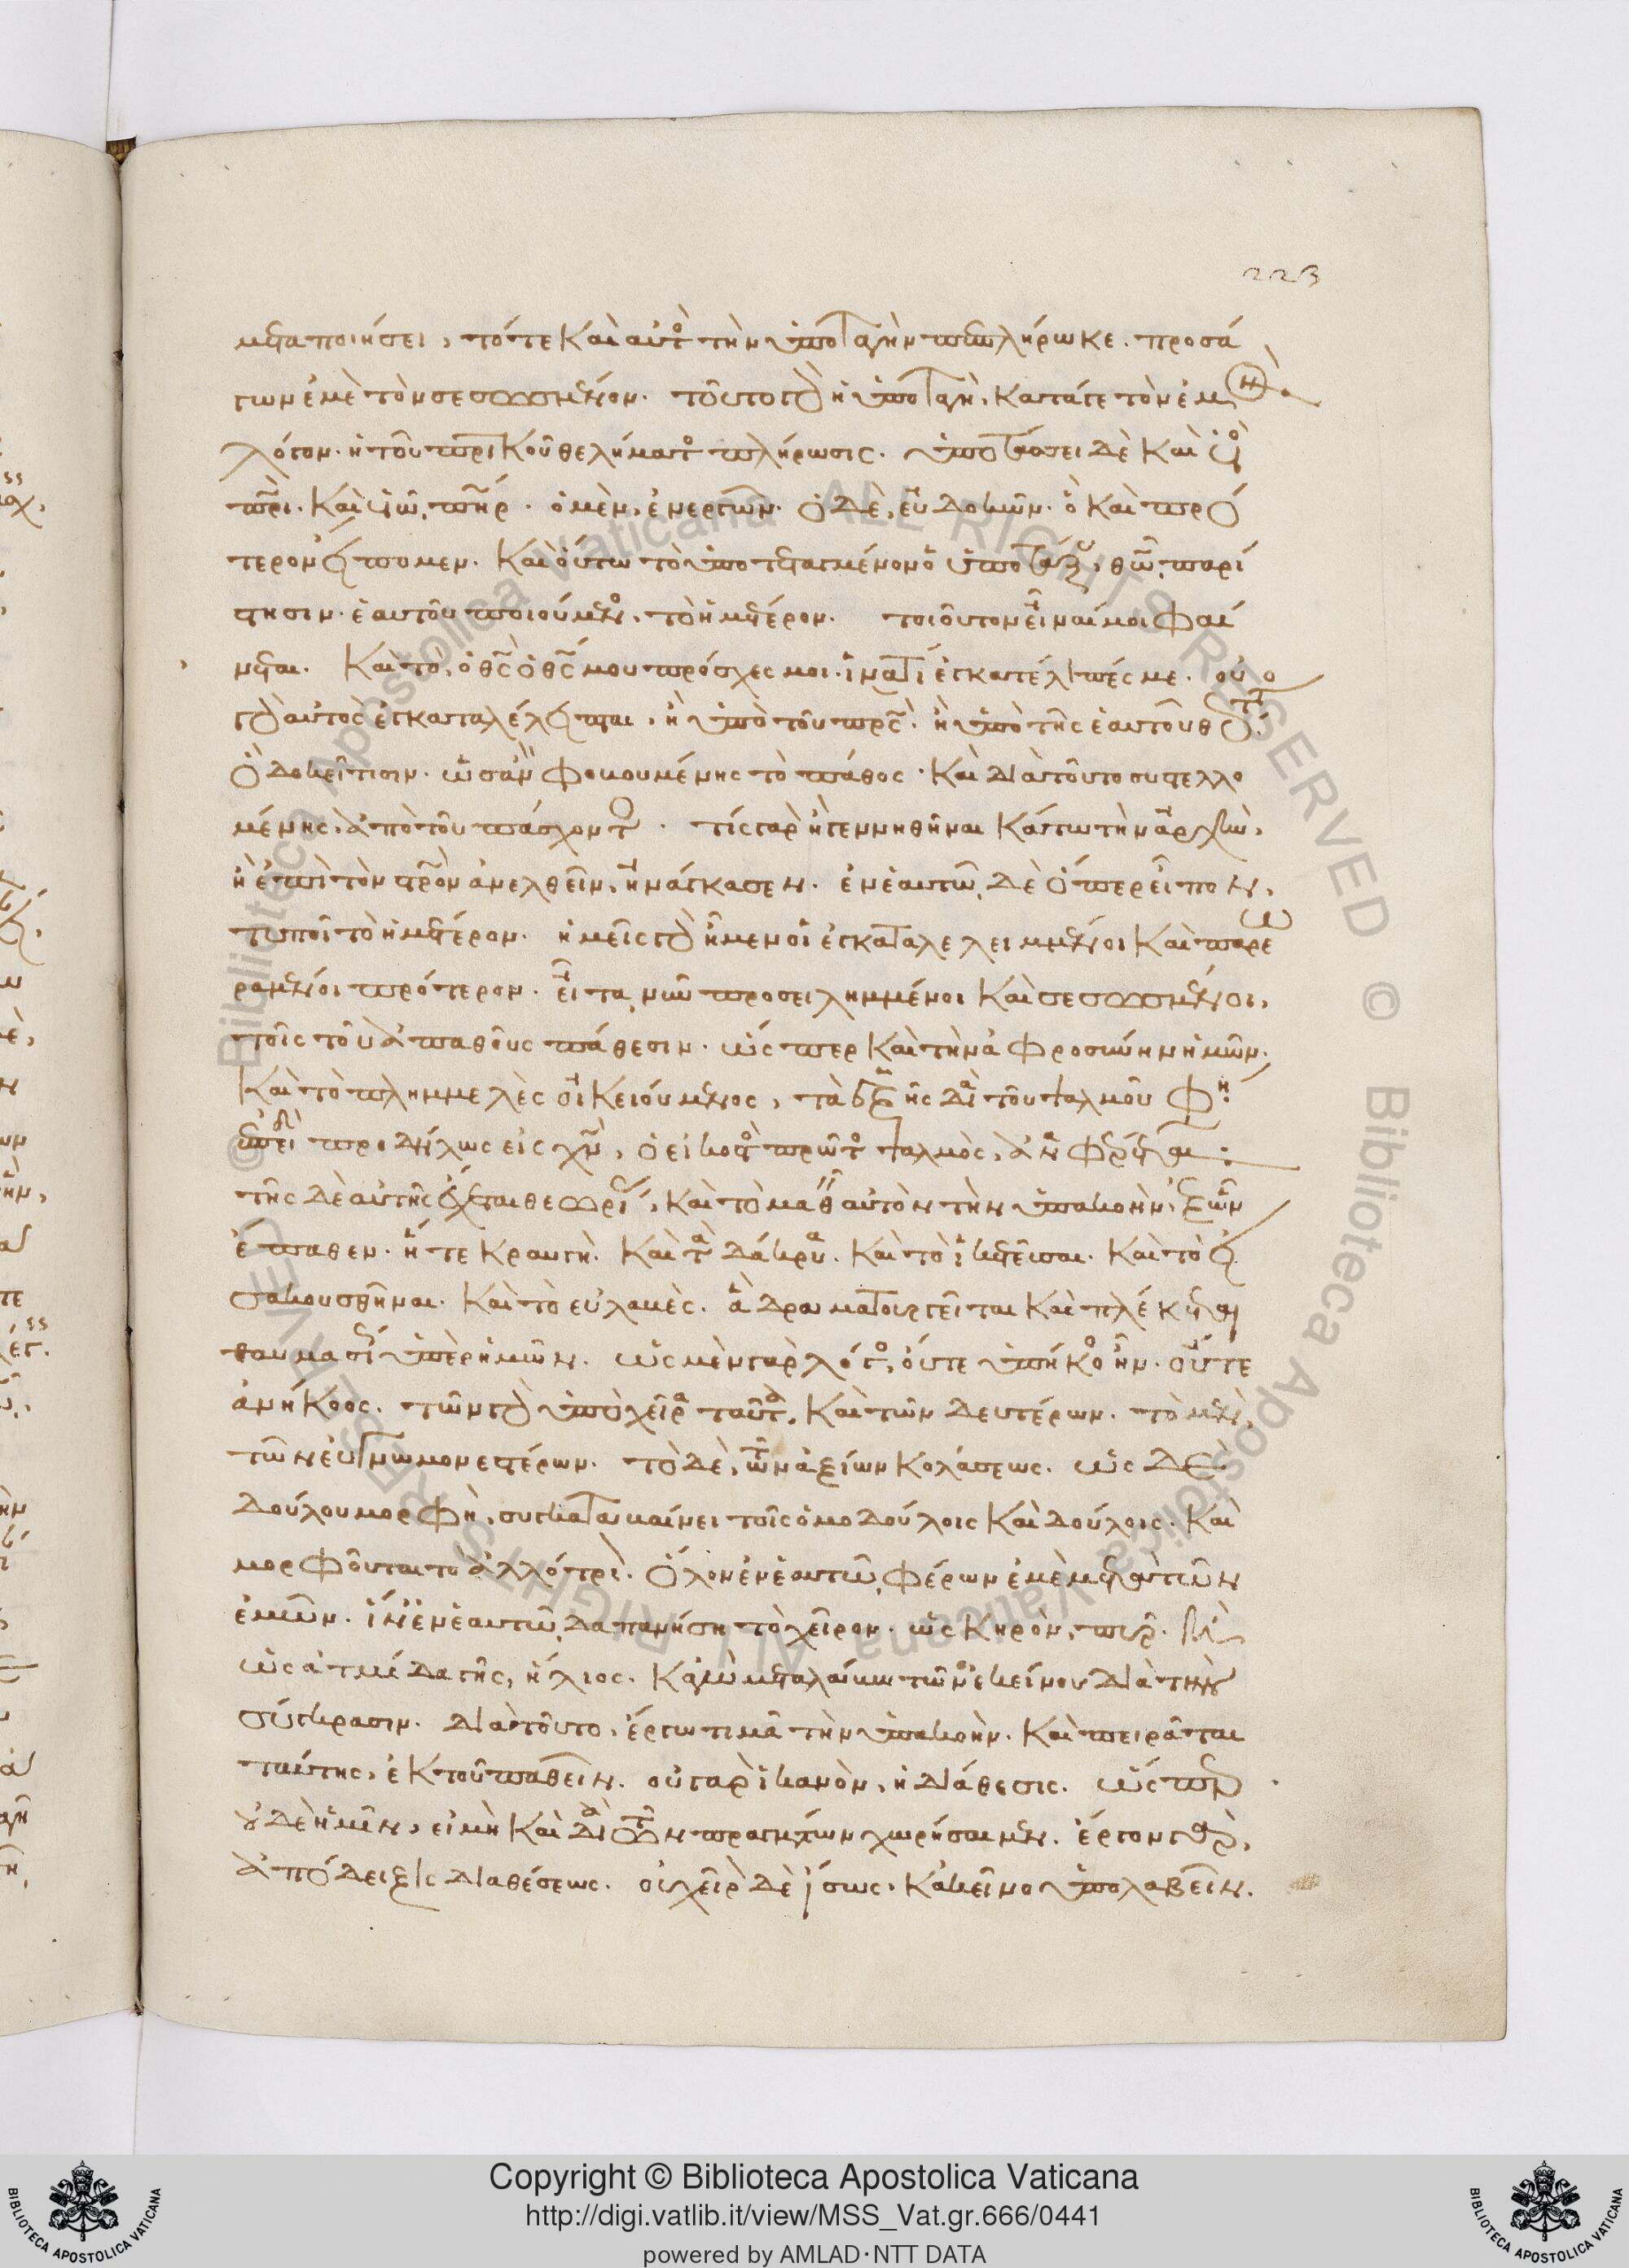 223
μεταποιήσει, τότε καὶ αὐτὸς τὴν ὑποταγὴν πεπλήρωκε. προσά
γων ἐμὲ τὸν σεσωσμένον. τοῦτο γὰρ ἡ ὑποταγὴ, κατά γε τὸν ἐμὸν
λόγον. ἡ τοῦ πρικοῦ θελήματος πλήρωσις. ὑποτάσσει δὲ καὶ υἱὸς
πρι. καὶ υἱῶ, πηρ. ὁ μὲν, ἐνεργῶν. ὁ δὲ, εὐδοκῶν. ὃ καὶ πρό
τερον εἴπομεν. καὶ οὕτω τὸ ὑποτεταγμένον ὁ ὑποτάξας, θῶ παρί
στησιν. ἑαυτοῦ ποιούμενος, τὸ ἡμέτερον. τοιοῦτον εἶναί μοι φαί
νεται. καὶ τὸ, ὁ θς ὁ θς μου πρόσχες μοι. ἱνατί ἐγκατέλιπές με. οὐ
γὰρ αὐτὸς ἐγκαταλέλειπται, ἢ ὑπὸ τοῦ πρς. ἢ ὑπὸ τῆς ἑαυτοῦ θεότητος.
ὃ δοκεῖ τισιν. ὡσὰν φοβουμένης τὸ πάθος. καὶ διὰ τοῦτο συστελλο
μένης, ἀπὸ τοῦ πάσχοντος. τίς γὰρ ἢ γεννηθῆναι κάτω τὴν ἀρχὴν,
ἢ ἐπὶ τὸν στρον ἀνελθεῖν, ἠνάγκασεν. ἐν ἑαυτῶ δὲ ὅπερ εἶπον,
τυποῖ τὸ ἡμέτερον. ἡμεῖς γὰρ ἦμεν οἱ ἐγκαταλελειμμένοι καὶ παρεω
ραμένοι πρότερον. εἶτα νῦν προσειλημμένοι καὶ σεσωσμένοι,
τοῖς τοῦ ἀπαθοῦς πάθεσιν. ὥσπερ καὶ τὴν ἀφροσύνην ἡμῶν.
καὶ τὸ πλημμελὲς οἰκειούμενος, τὰ ἑξῆς διὰ τοῦ ψαλμοῦ φησίν.
ἐπεὶ προδήλως εἰς χν, ὁ εἰκοστὸς πρῶτος ψαλμὸς, ἀναφέρεται:
τῆς δὲ αὐτῆς ἔχεται θεωρίας, καὶ τὸ μαθεῖν αὐτὸν τὴν ὑπακοὴν, ἐξ ὧν
ἔπαθεν. ἥ τε κραυγὴ. καὶ τὰ δάκρυα. καὶ τὸ ἱκετεῦσαι. καὶ τὸ εἰ
σακουσθῆναι. καὶ τὸ εὐλαβὲς. ἃ δραματουργεῖται καὶ πλέκεται
θαυμασίως ὑπὲρ ἡμῶν. ὡς μὲν γὰρ λόγος, οὔτε ὑπήκοος ἦν. οὔτε
ἀνήκοος. τῶν γὰρ ὑπὸ χεῖρα ταῦτα, καὶ τῶν δευτέρων. τὸ μὲν,
τῶν εὐγνωμονεστέρων. τὸ δὲ, τῶν ἀξίων κολάσεως. ὡς δὲ
δούλου μορφὴ, συγκαταβαίνει τοῖς ὁμοδούλοις καὶ δούλοις. καὶ
μορφοῦται τὸ ἀλλότριον. ὅλον ἐν ἑαυτῶ φέρων ἐμὲ μετὰ τῶν
ἐμῶν. ἵν' ἐν ἑαυτῶ δαπανήση τὸ χεῖρον. ὡς κηρὸν, πῦρ. ἢ
ὡς ἀτμίδα γῆς, ἥλιος. κἀγὼ μεταλάβω τῶν ἐκείνου διὰ τὴν
σύγκρασιν. διὰ τοῦτο, ἔργω τιμᾶ τὴν ὑπακοὴν. καὶ πειρᾶται
ταύτης, ἐκ τοῦ παθεῖν. οὐ γὰρ ἱκανὸν, ἡ διάθεσις. ὥσπερ
οὐδὲ ἡμῖν, εἰ μὴ καὶ διὰ τῶν πραγμάτων χωρήσαιμεν. ἔργον γὰρ,
ἀπόδειξις διαθέσεως. οὐ χεῖρον δὲ ἴσως, κἀκεῖνο ὑπολαβεῖν.
Copyright © Biblioteca Apostolica Vaticana
http://digi.vatlib.it/view/MSS_Vat.gr.666/0441
powered by AMLAD·NTT DATA